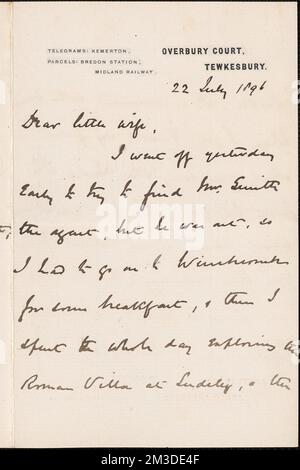 TELEGRAMS: KEMERTON,
PARCELS: BREDON STATION,
MIDLAND RAILWAY.
OVERBURY COURT,
TEWKESBURY.
22 July 1896
Dear little wife,
I went off yesterday
early to try to find Mr. Smith
the agent, but he was out, so
I had to go on to Winchcombe
for some breakfast, & then I
spent the whole day exploring
Roman Villa at Sudeley, & then
alamy
Image ID: 2M3DE4F
www.alamy.com